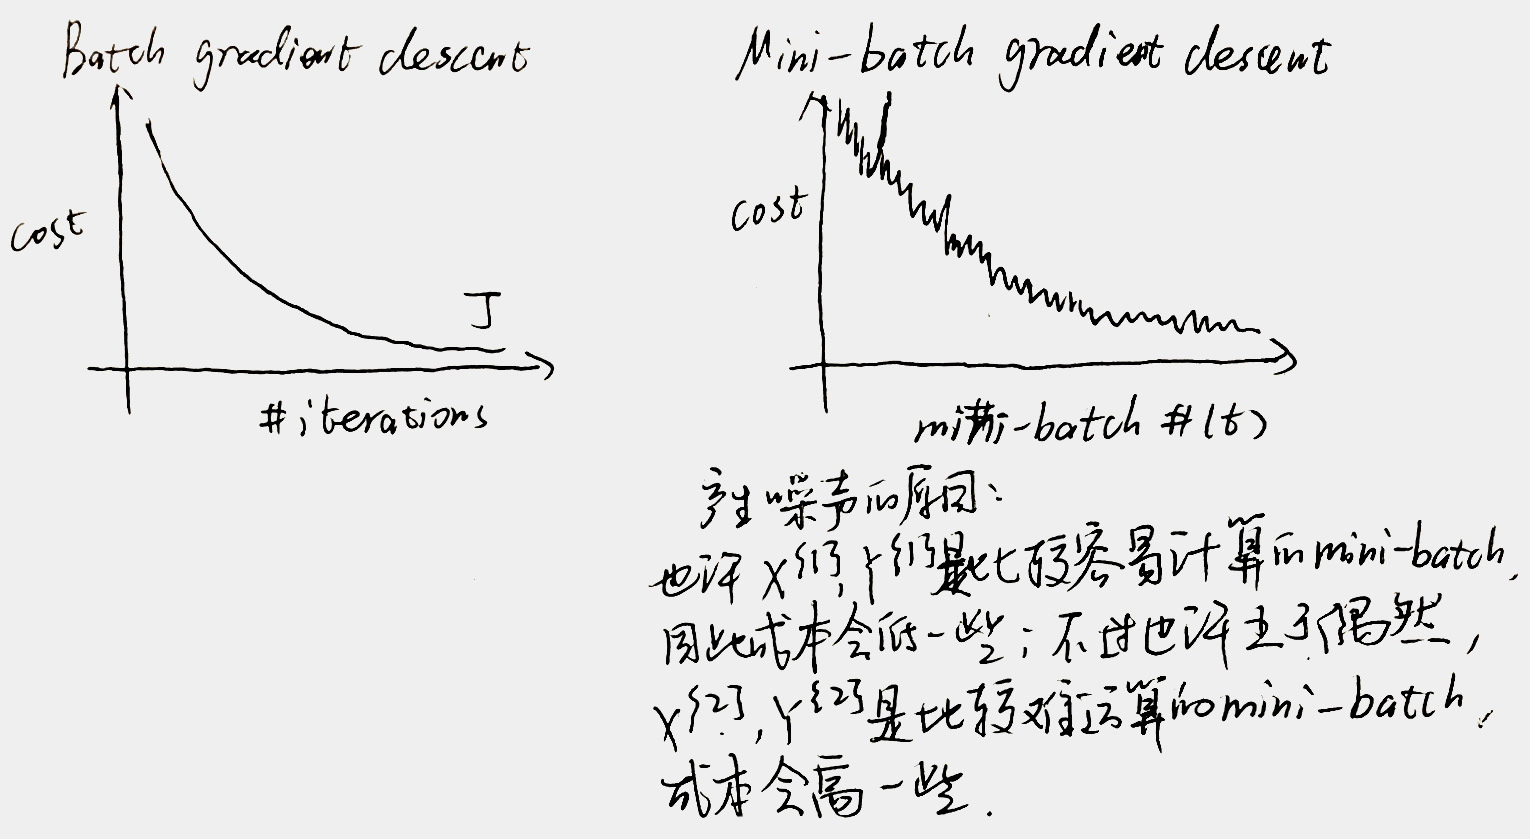 Batch gradient descent
cost
J
# iterations
Mini-batch gradient descent
cost
mini-batch # (t)
产生噪声的原因：
也许 X^{1}, Y^{1} 是比较容易计算的 mini-batch,
因此成本会低一些；不过也许出于偶然，
X^{2}, Y^{2} 是比较难运算的 mini-batch,
成本会高一些.